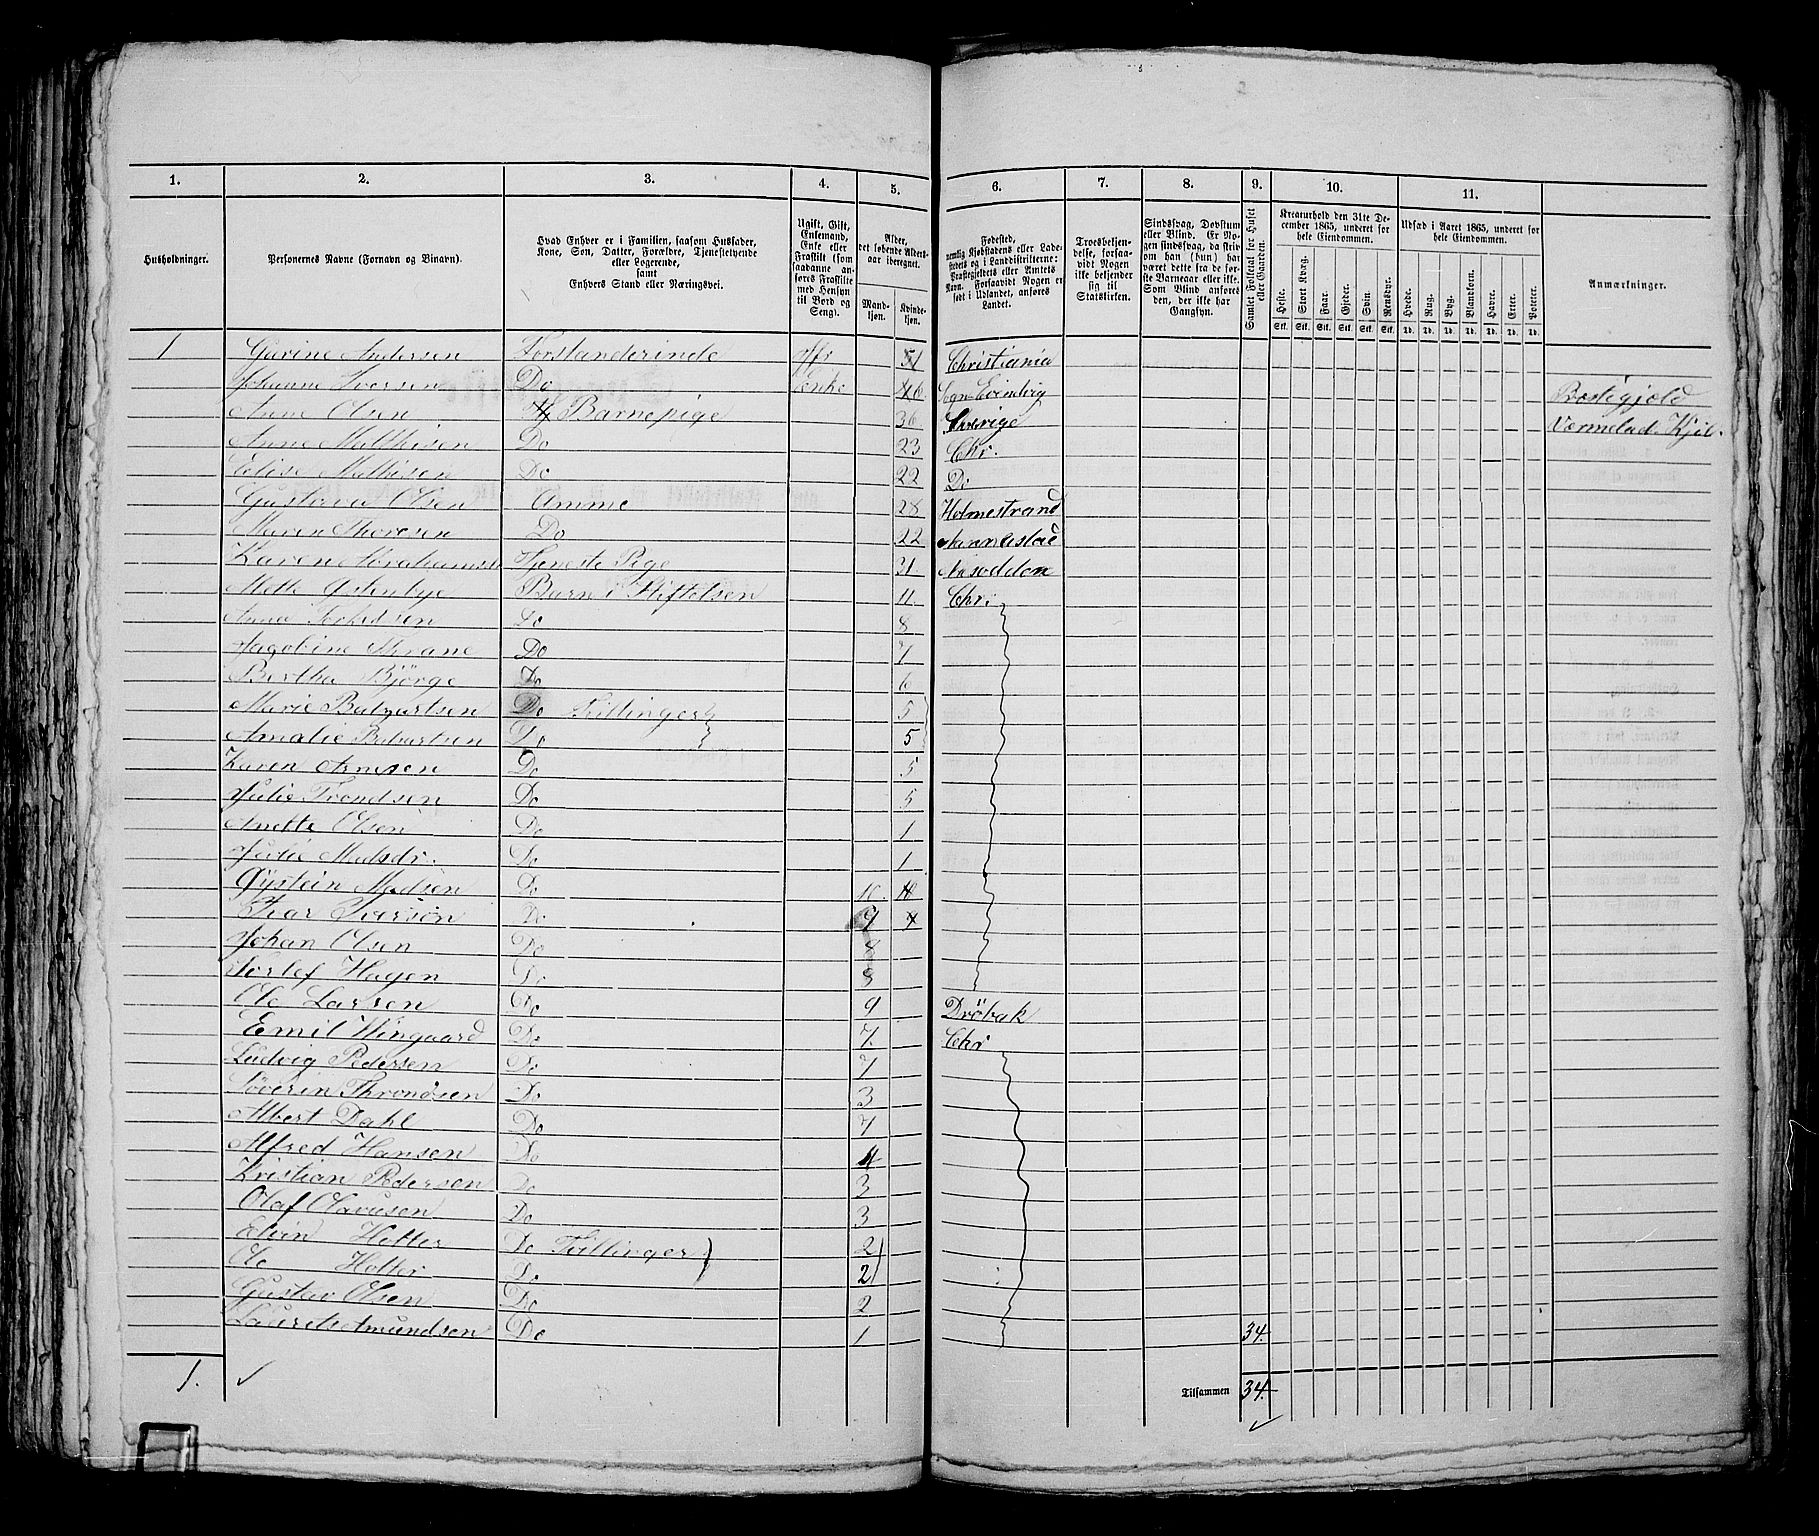 1. 2. 3. 4. 5. 6. 7. 8. 9. 10. 11.
Husholdninger. Personernes Navne (Fornavn og Binavn). Hvad Enhver er i Familien, saasom Husfader, Kone, Søn, Datter, Forældre, Tjenestetyende eller Logerende, samt Enhvers Stand eller Næringsvei. Ugift, Gift, Enkemand, Enke eller Fraskilt (som saadanne anføres Fraskilte med Hensyn til Bord og Seng). Alder, det løbende Aldersaar iberegnet. Mandkjøn. Kvindekjøn. Fødested, nemlig Kjøbstadens eller Ladestedets og i Landdistrikterne: Præstegjeldets eller Amtets Navn. Forsaavidt Nogen er født i Udlandet, anføres Landet. Troesbekjendelse, forsaavidt Nogen ikke bekjender sig til Statskirken. Sindssvag, Døvstum eller Blind. Er Nogen sindssvag, da skrives om han (hun) har været dette fra de første Barneaar eller ikke. Som Blind anføres den, der ikke har Gangsyn. Samlet Folketal for Huset eller Gaarden. Kreaturhold den 31te December 1865, underet for hele Eiendommen. Heste. Stort Kvæg. Faar. Gjeder. Svin. Rensdyr. Udsæd i Aaret 1865, underet for hele Eiendommen. Hvede. Rug. Byg. Blandkorn. Havre. Erter. Poteter. Anmærkninger.
Stk. Stk. Stk. Stk. Stk. Stk. Td. Td. Td. Td. Td. Td. Td.
1 Gurine Andersen Forstanderinde 51 Christiania
Johanne Iversen Do Enke 46 Sogn Evindvig
Anne Olsen Barnepige 36 Sverige Vermelad. Kjil.
Anne Mathisen Do 23 Chr.
Elise Mathisen Do 22 Do
Gustava Olsen Amme 28 Holmestrand
Maren Thoresen Do 22
Karen Abrahamss Tjeneste Pige 31 Næsodden
Mette Østenbye Barn i Stiftelsen 11 Chr:
Anna Do 8
Jagobine Do 7
Bertha Bjørge Do 6
Marie Balzartsen Do Tvillinger 5
Amalie Balzartsen Do 5
Karen Arnesen Do 5
Julie Trondsen Do 5
Anette Olsen Do 1
Julie Madsdr. Do 1
Øystein Madsen Do 10
Ivar Ivarson Do 9
Johan Olsen Do 8
Torlef Hagen Do 8
Ole Larsen Do 9 Dröbak
Emil Wingaard Do 7. Chr
Ludvig Pedersen Do 7
Söverin Throndsen Do 3
Albert Dahl Do 7
Alfred Hansen Do 4
Kristian Pedersen Do 3
Olaf Olavesen Do 3
Edvin Holter Do Tvillinger 2
Ole Holter Do 2
Gustav Olsen Do 2
Laurits Amundsen Do 1 34.
1. Tilsammen 34.